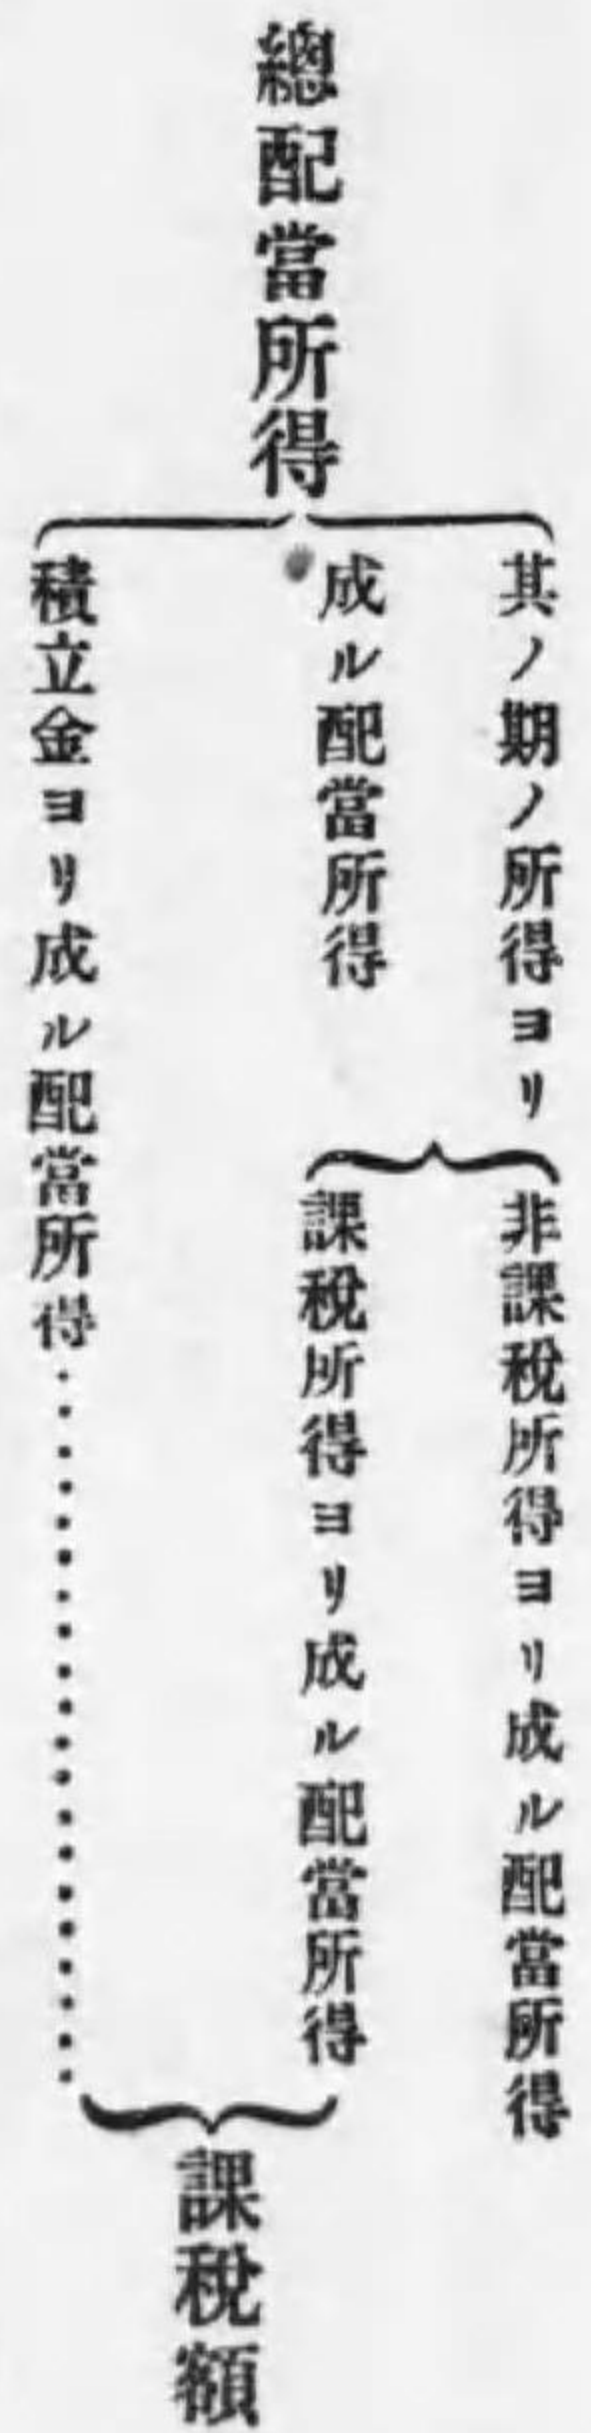 總配當所得
其ノ期ノ所得ヨリ
成ル配當所得
非課稅所得ヨリ成ル配當所得
課稅所得ヨリ成ル配當所得
積立金ヨリ成ル配當所得…………………
課稅額